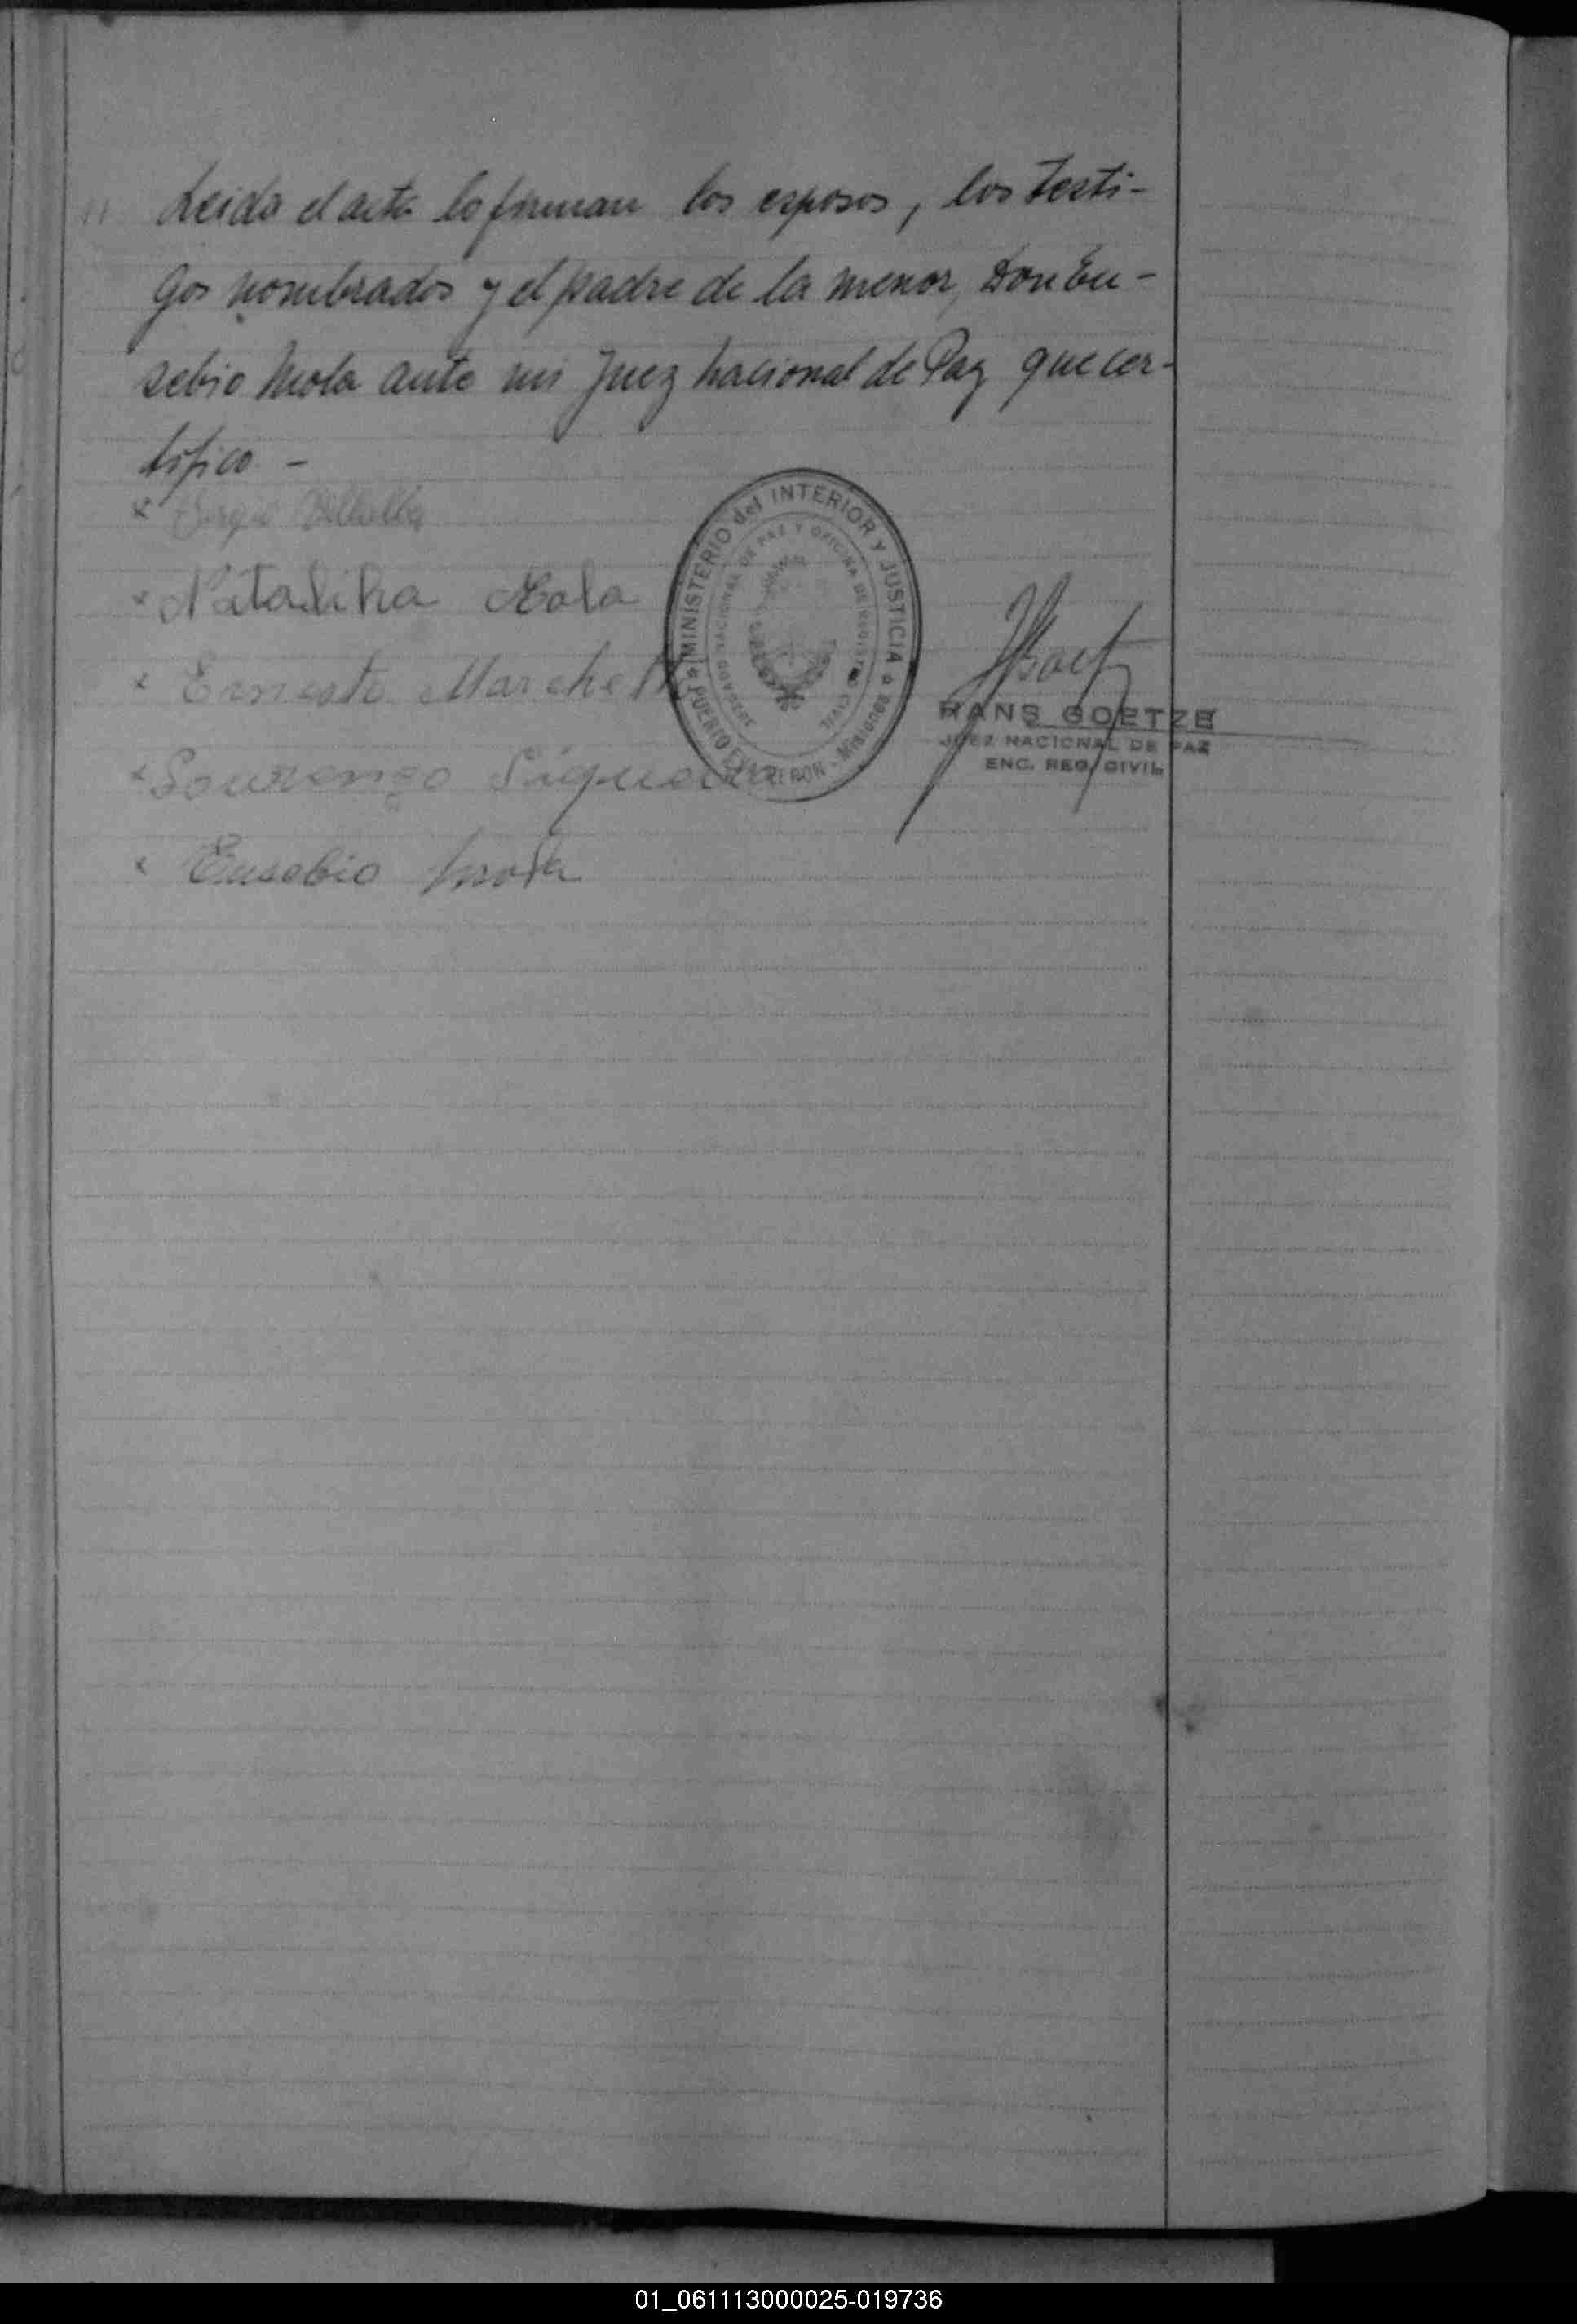 Leido el acta lo firman los esposos, los testi-
gos nombrados y el padre de la menor, Don Eu-
sebio Mola ante mi Juez Nacional de Paz que cer-
tifico. -
x Sergio Villalba
x Natalina Mola
x Ernesto Marchetti
x Lourenço Siqueira
x Eusebio Mola
MINISTERIO del INTERIOR y JUSTICIA
JUZGADO NACIONAL DE PAZ Y OFICINA DE REGISTRO CIVIL
PUERTO EVA PERON - Misiones
HANS GOETZE
JUEZ NACIONAL DE PAZ
ENC. REG. CIVIL
01_061113000025-019736